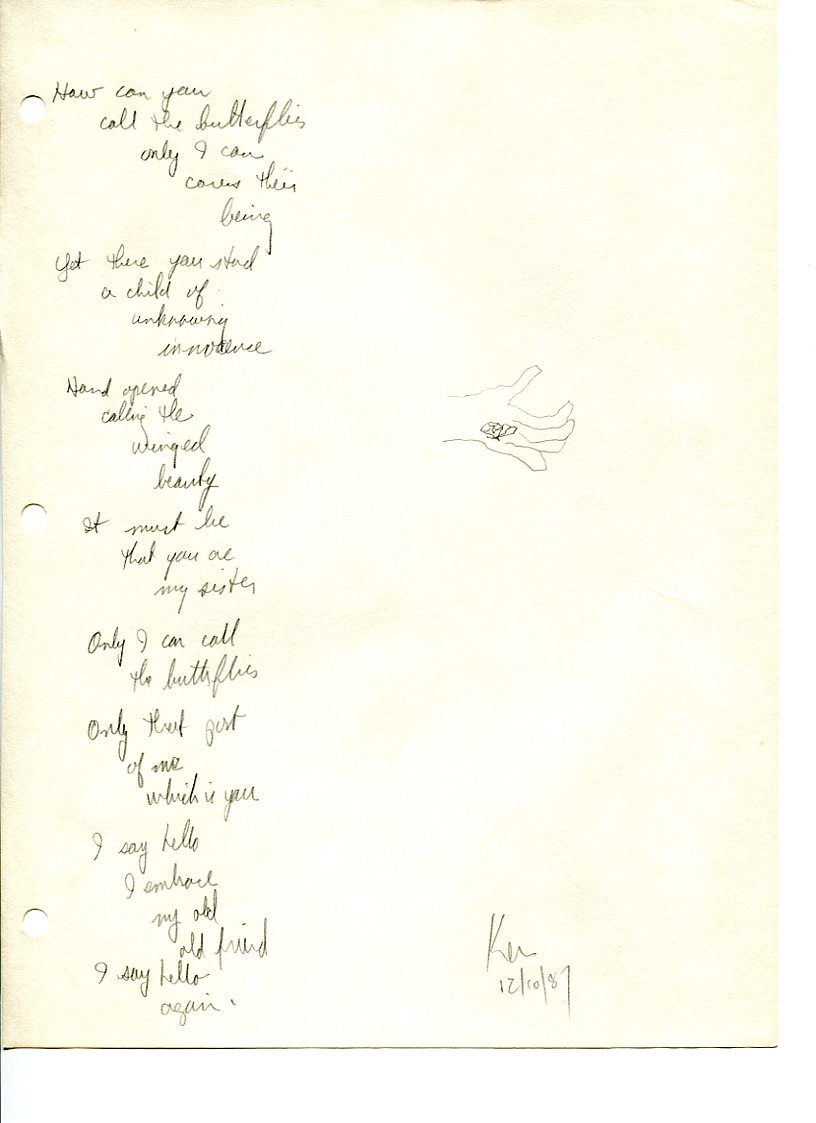 How can you
call the butterflies
only I can
caress their
being
Yet there you stand
a child of
unknowing
innocence
Hand opened
calling the
winged
beauty
It must be
that you are
my sister
Only I can call
the butterflies
Only that part
of me
which is you
I say hello
I embrace
my old
old friend
I say hello
again.
Ken
12/10/87